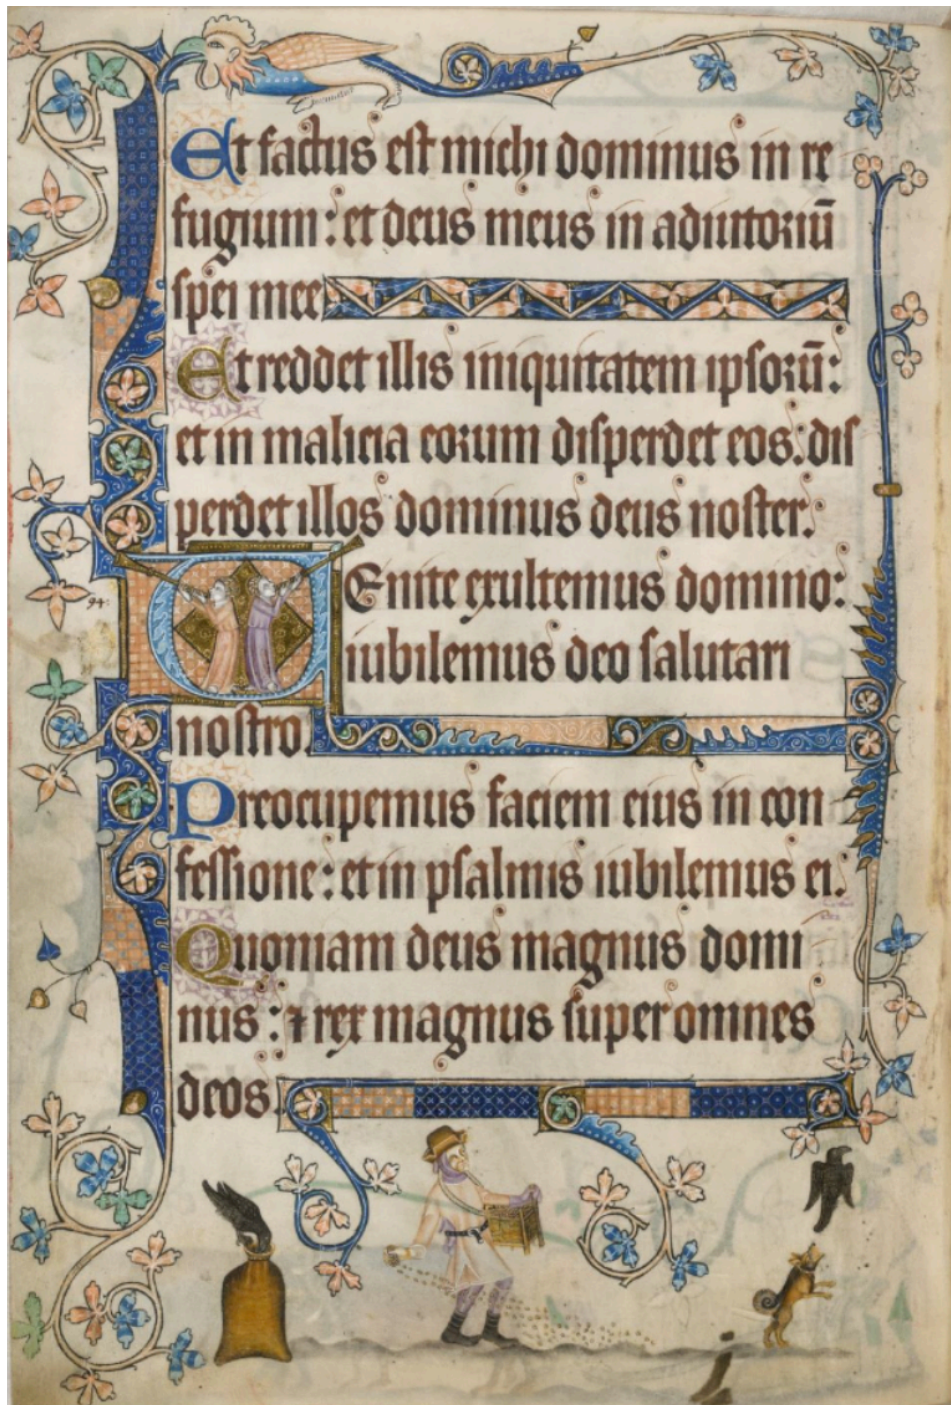 Et factus est michi dominus in re
fugium : et deus meus in adiutoriū
spei mee
Et reddet illis iniquitatem ipsorū :
et in malicia eorum disperdet eos : dis
perdet illos dominus deus noster.
94.
Venite exultemus domino :
iubilemus deo salutari
nostro.
Preocupemus faciem eius in con
fessione : et in psalmis iubilemus ei.
Quoniam deus magnus domi
nus : ⁊ rex magnus super omnes
deos.